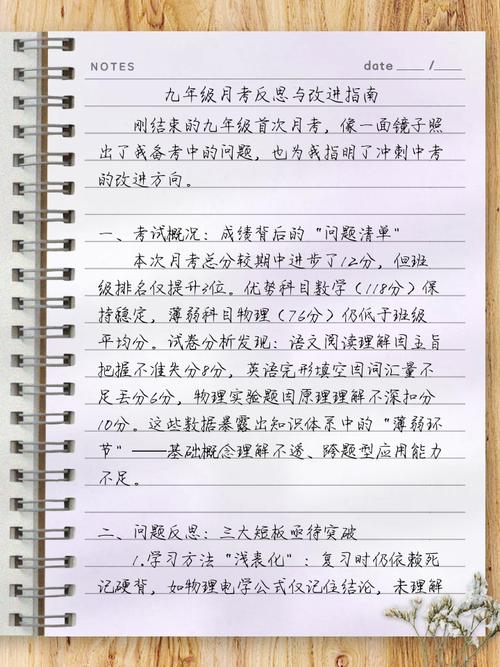 NOTES
date ____ /____
九年级月考反思与改进指南
刚结束的九年级首次月考，像一面镜子照
出了我备考中的问题，也为我指明了冲刺中考
的改进方向。
一、考试概况：成绩背后的“问题清单”
本次月考总分较期中进步了12分，但班
级排名仅提升3位。优势科目数学（118分）保
持稳定，薄弱科目物理（76分）仍低于班级
平均分。试卷分析发现：语文阅读理解因主旨
把握不准失分8分，英语完形填空因词汇量不
足丢分6分，物理实验题因原理理解不深扣分
10分。这些数据暴露出知识体系中的“薄弱环
节”——基础概念理解不透、跨题型应用能力
不足。
二、问题反思：三大短板亟待突破
1.学习方法“浅表化”：复习时仍依赖死
记硬背，如物理电学公式仅记住结论，未理解